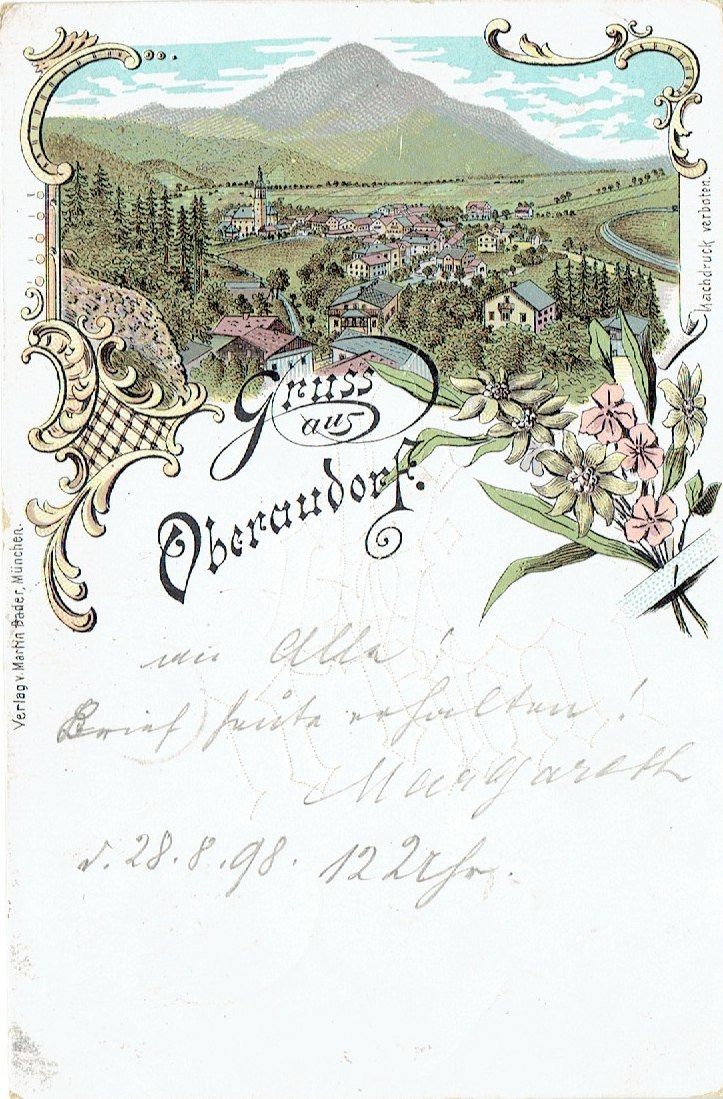 Gruss
aus
Oberaudorf.
Nachdruck verboten.
Verlag v. Martin Bader, München.
an Alle!
Brief heute erhalten!
Margareth
d. 28.8.98. 12 Uhr.